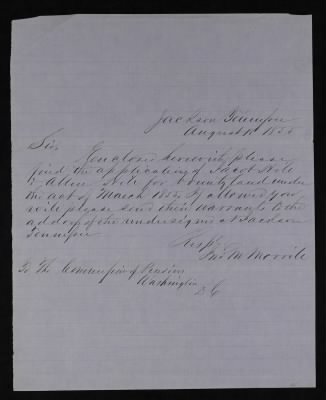 Jackson Tennessee
August 1855
Sir,
Enclosed herewith please
find the application of Jacob Nole
& Allen Nole for bounty land under
the act of March 1855 If allowed you
will please send their warrants to the
address of the undersigned at Jackson
Tennessee
Resply
Jno M
To The Commissioner of Pensions
Washington
D C